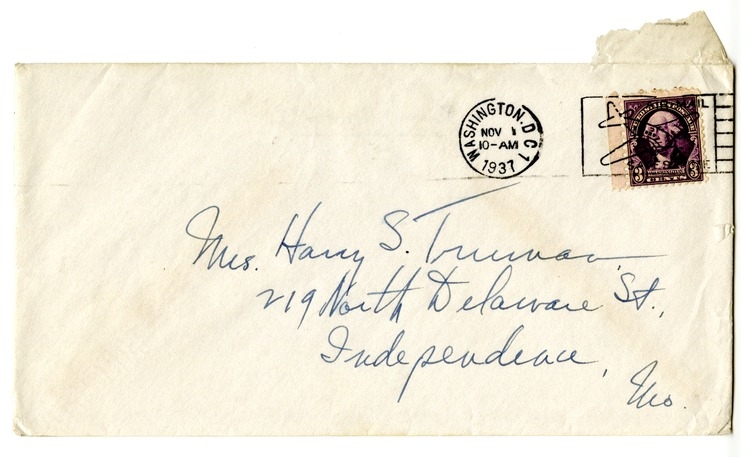 WASHINGTON, D.C. 1
NOV 1
10-AM
1937
3 3
CENTS
Mrs. Harry S. Truman,
219 North Delaware St.,
Independence,
Mo.